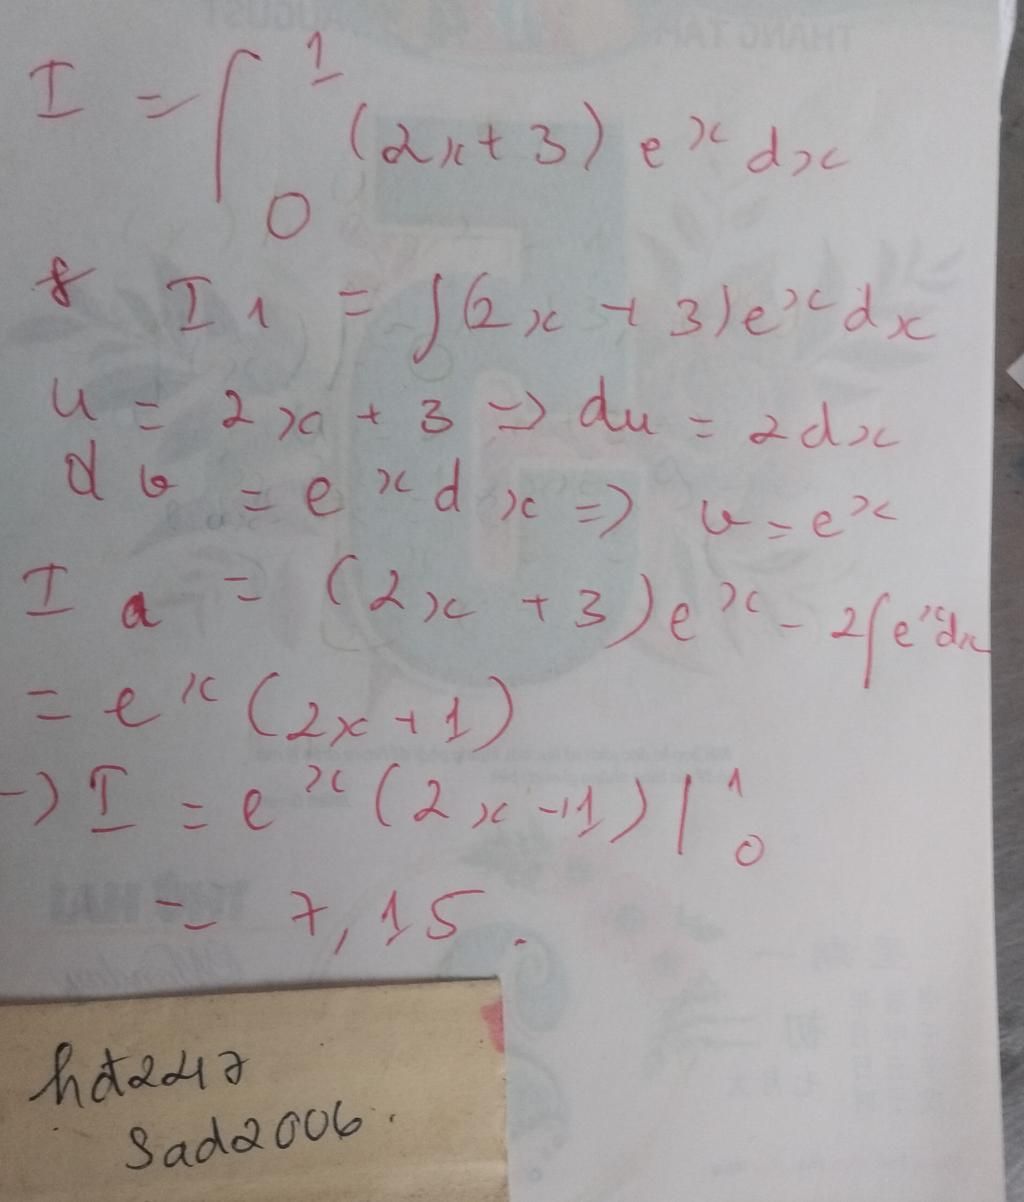 I = ∫₀¹ (2x+3) e^x dx
* I1 = ∫(2x+3)e^x dx
u = 2x + 3 => du = 2dx
dv = e^x dx => v = e^x
I a = (2x +3)e^x - 2∫e^x dx
= e^x (2x+1)
-) I = e^x (2x+1) |¹₀
= 7,15.
hd2247
Sad2006.